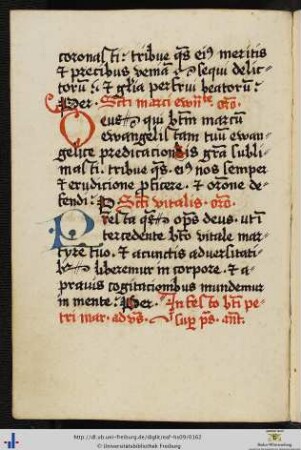 coronasti: tribue q̄s ei⁹ meritis
et precibus veniā sequi delic-
torū: et gl̄ia perfrui beatorū:
Per. Scī marci ewn̄te oro.
Deus qui btm̄ marcū
ewangelistam tuū ewan-
gelice predicationis grā subli-
masti: tribue q̄s. ei⁹ nos semper
et erudicione p̄ficere. et orone de-
fendi: P Scī vitalis. oro.
Presta ops̄ deus. ut ī
tercedente bto vitale mar-
tyre tuo. et a cunctis adversitati-
liberemur in corpore. et a
pravis cogitationibus mundemur
in mente: Per. In festo bti pe-
tri mar. ad vs̄. sup p̄s. ant.
http://dl.ub.uni-freiburg.de/diglit/
© Universitätsbibliothek Freiburg